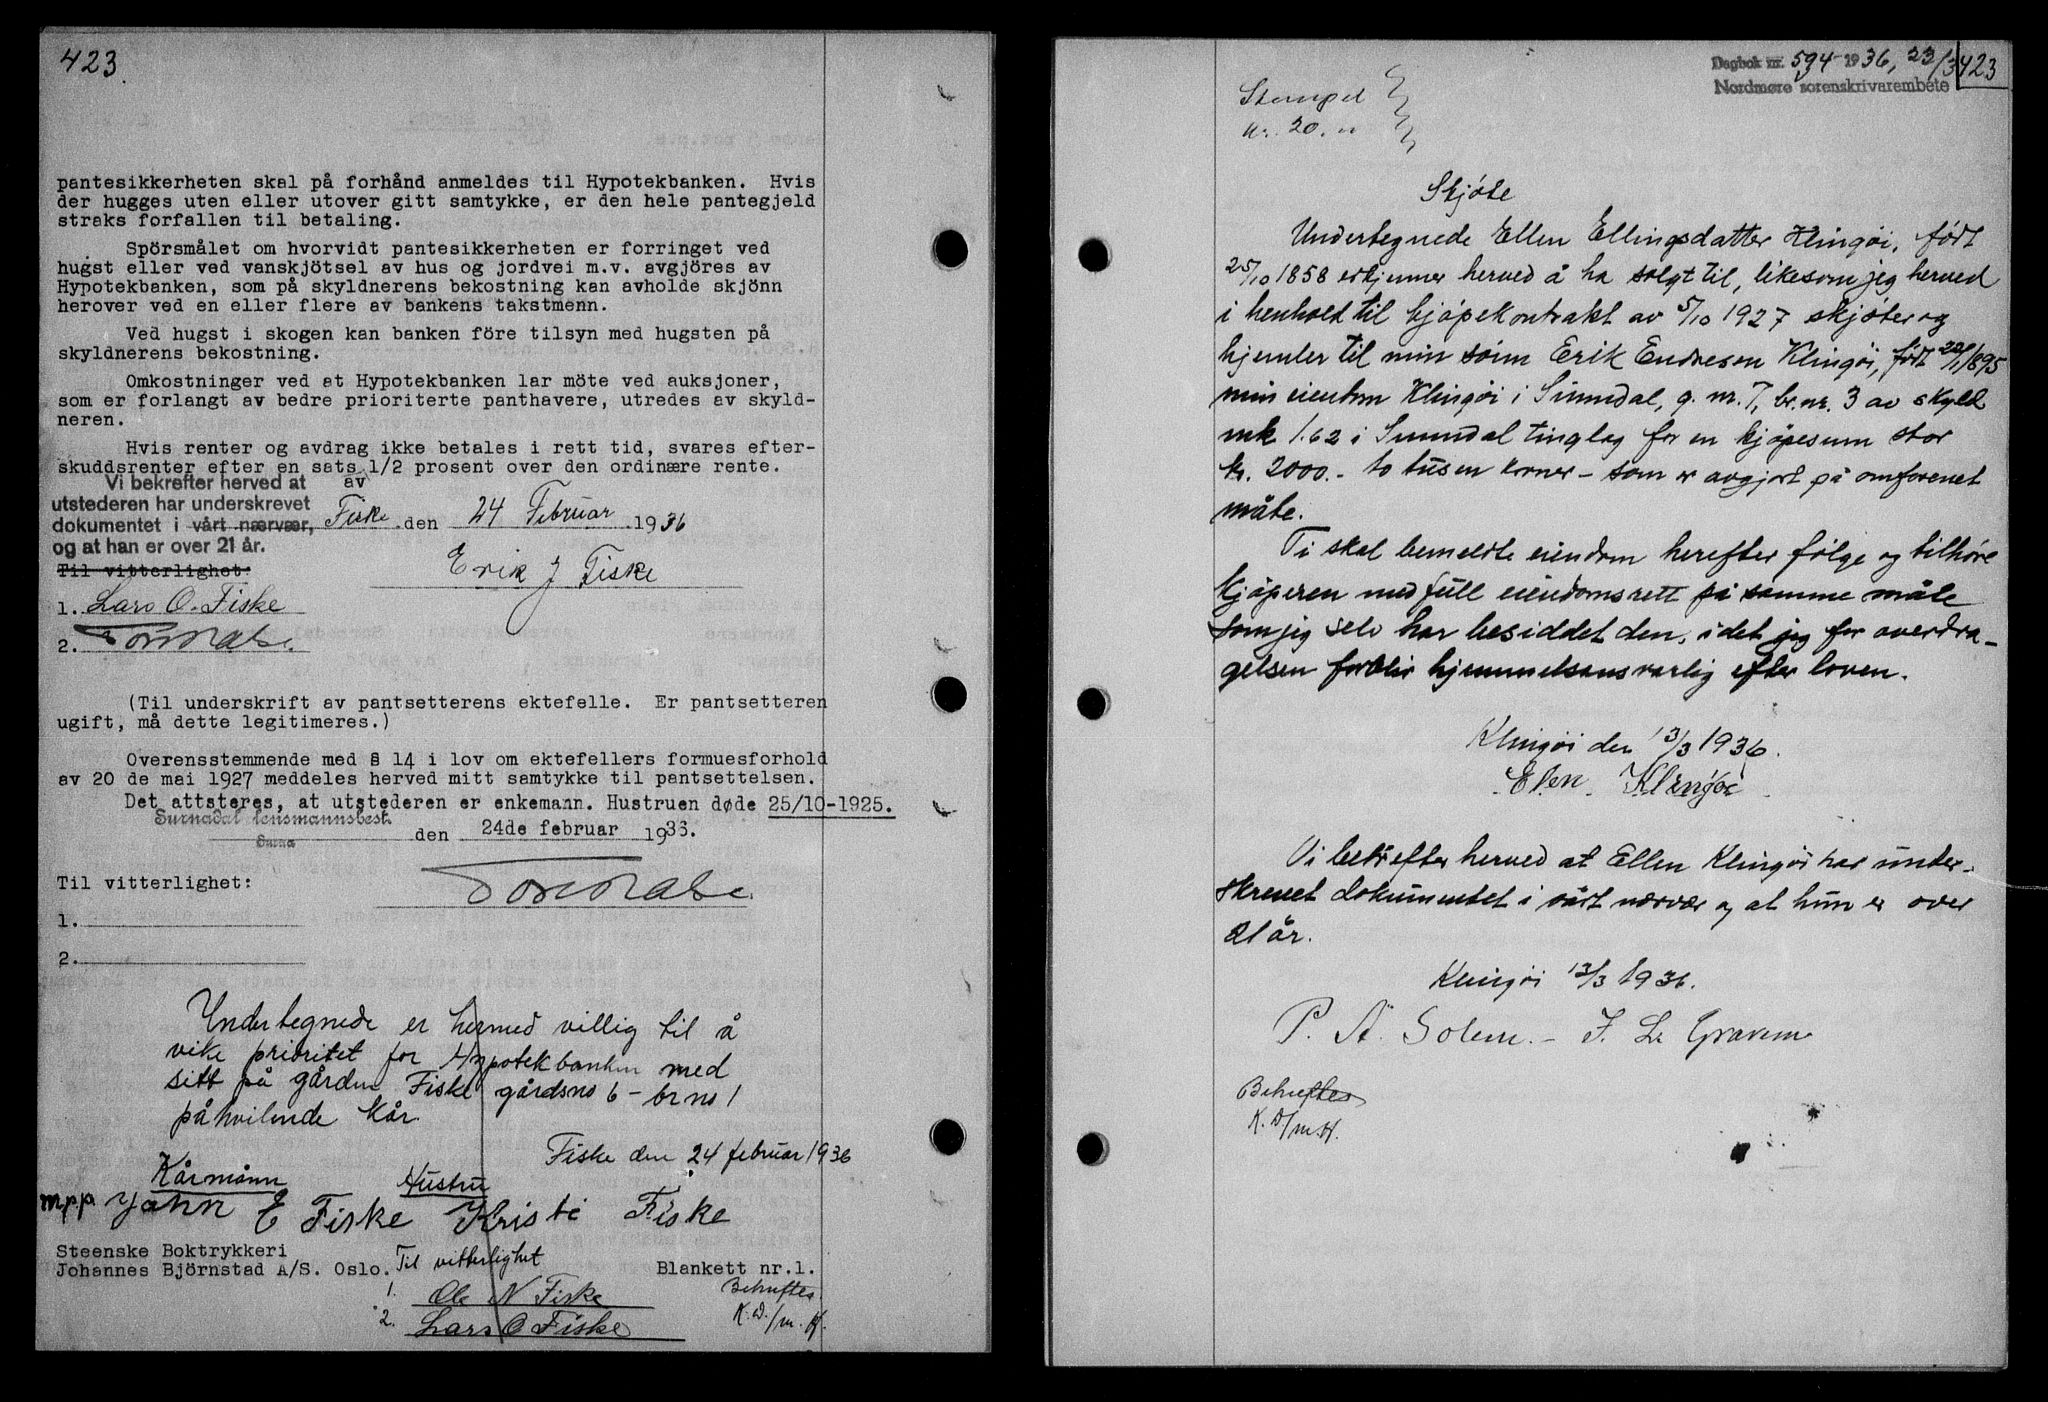 423.
pantesikkerheten skal på forhånd anmeldes til Hypotekbanken. Hvis
der hugges uten eller utover gitt samtykke, er den hele pantegjeld
straks forfallen til betaling.
Spörsmålet om hvorvidt pantesikkerheten er forringet ved
hugst eller ved vanskjötsel av hus og jordvei m.v. avgjöres av
Hypotekbanken, som på skyldnerens bekostning kan avholde skjönn
herover ved en eller flere av bankens takstmenn.
Ved hugst i skogen kan banken före tilsyn med hugsten på
skyldnerens bekostning.
Omkostninger ved at Hypotekbanken lar möte ved auksjoner,
som er forlangt av bedre prioriterte panthavere, utredes av skyld-
neren.
Hvis renter og avdrag ikke betales i rett tid, svares efter-
skuddsrenter efter en sats 1/2 prosent over den ordinære rente.
Vi bekrefter herved at av
utstederen har underskrevet
dokumentet i vårt nærvær, Fiske den 24 Februar 1936
og at han er over 21 år.
Til vitterlighet: Erik J Fiske
1. Lars O. Fiske
2.
(Til underskrift av pantsetterens ektefelle. Er pantsetteren
ugift, må dette legitimeres.)
Overensstemmende med § 14 i lov om ektefellers formuesforhold
av 20 de mai 1927 meddeles herved mitt samtykke til pantsettelsen.
Det attsteres, at utstederen er enkemann. Hustruen døde 25/10-1925.
Surnadal lensmannsbest. den 24de februar 1936.
Surna
Til vitterlighet:
1.
2.
Undertegnede er hermed villig til å
vike prioritet for Hypotekbanken med
sitt på gården Fiske gårdsno 6 - brno 1
påhvilende kår
Fiske den 24 februar 1936
Kårmann Hustru
m.p.p. John E Fiske Kristi Fiske
Steenske Boktrykkeri
Johannes Björnstad A/S. Oslo. Til vitterlighet Blankett nr.1.
1. Ole N Fiske Bekreftes.
2. Lars O Fiske K.D./m.H.
Dagbok nr. 594 1936, 23/3 423
Nordmøre sorenskrivarembete
Stempel
kr. 20.
Skjøte
Undertegnede Ellen Ellingsdatter Klingøi, født
25/10 1858 erkjenner herved å ha solgt til, likesom jeg herved
i henhold til kjøpekontrakt av 5/10 1927 skjøter og
hjemler til min sønn Erik Endreson Klingøi, født 20/1 1895
min eiendom Klingøi i Sunndal, g. nr. 7, br. nr. 3 av skyld
mk 1.62 i Sunndal tinglag for en kjøpesum stor
kr. 2000.- to tusen kroner - som er avgjort på omforenet
måte.
Ti skal bemeldte eiendom herefter følge og tilhøre
kjøperen med full eiendomsrett på samme måte
som jeg selv har besiddet den, idet jeg for overdra-
gelsen forblir hjemmelsansvarlig efter loven.
Klingøi den 13/3 1936.
Elen Klingøi
Vi bekrefter herved at Ellen Klingøi har under-
skrevet dokumentet i vårt nærvær og at hun er over
21 år.
Klingøi 13/3 1936.
P. A. Solem. - J. L. Gravem
Bekreftes
K. D/m.H.